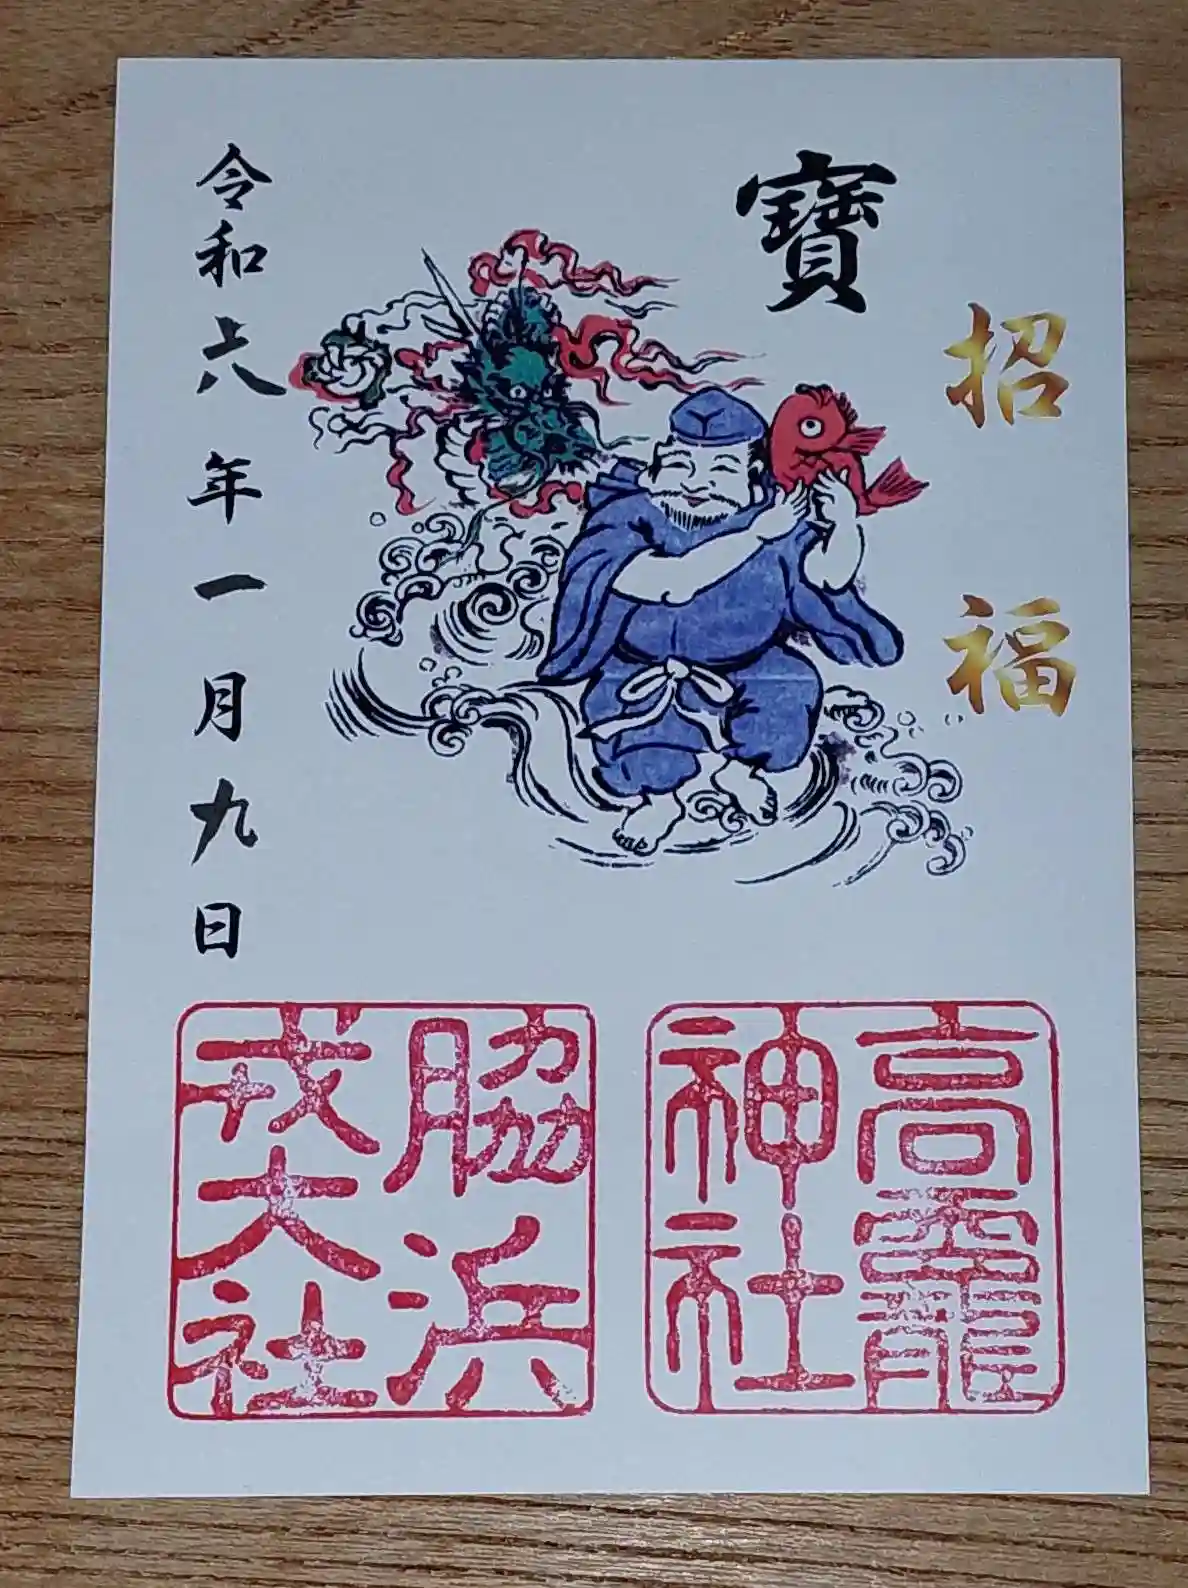 招福
寶
令和六年一月九日
高龗
神社
脇浜
戎大社